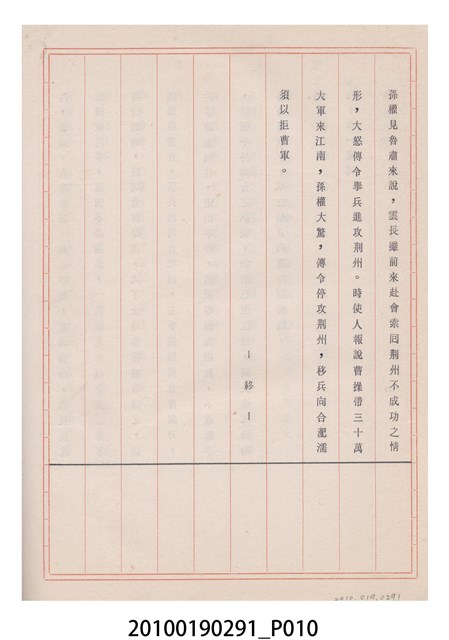 孫權見魯肅來說，雲長雖前來赴會索囘荆州不成功之情
形，大怒傳令擧兵進攻荆州。時使人報說曹操帶三十萬
大軍來江南，孫權大驚，傳令停攻荆州，移兵向合淝濡
須以拒曹軍。
— 終 —
2010.019.0291
20100190291_P010